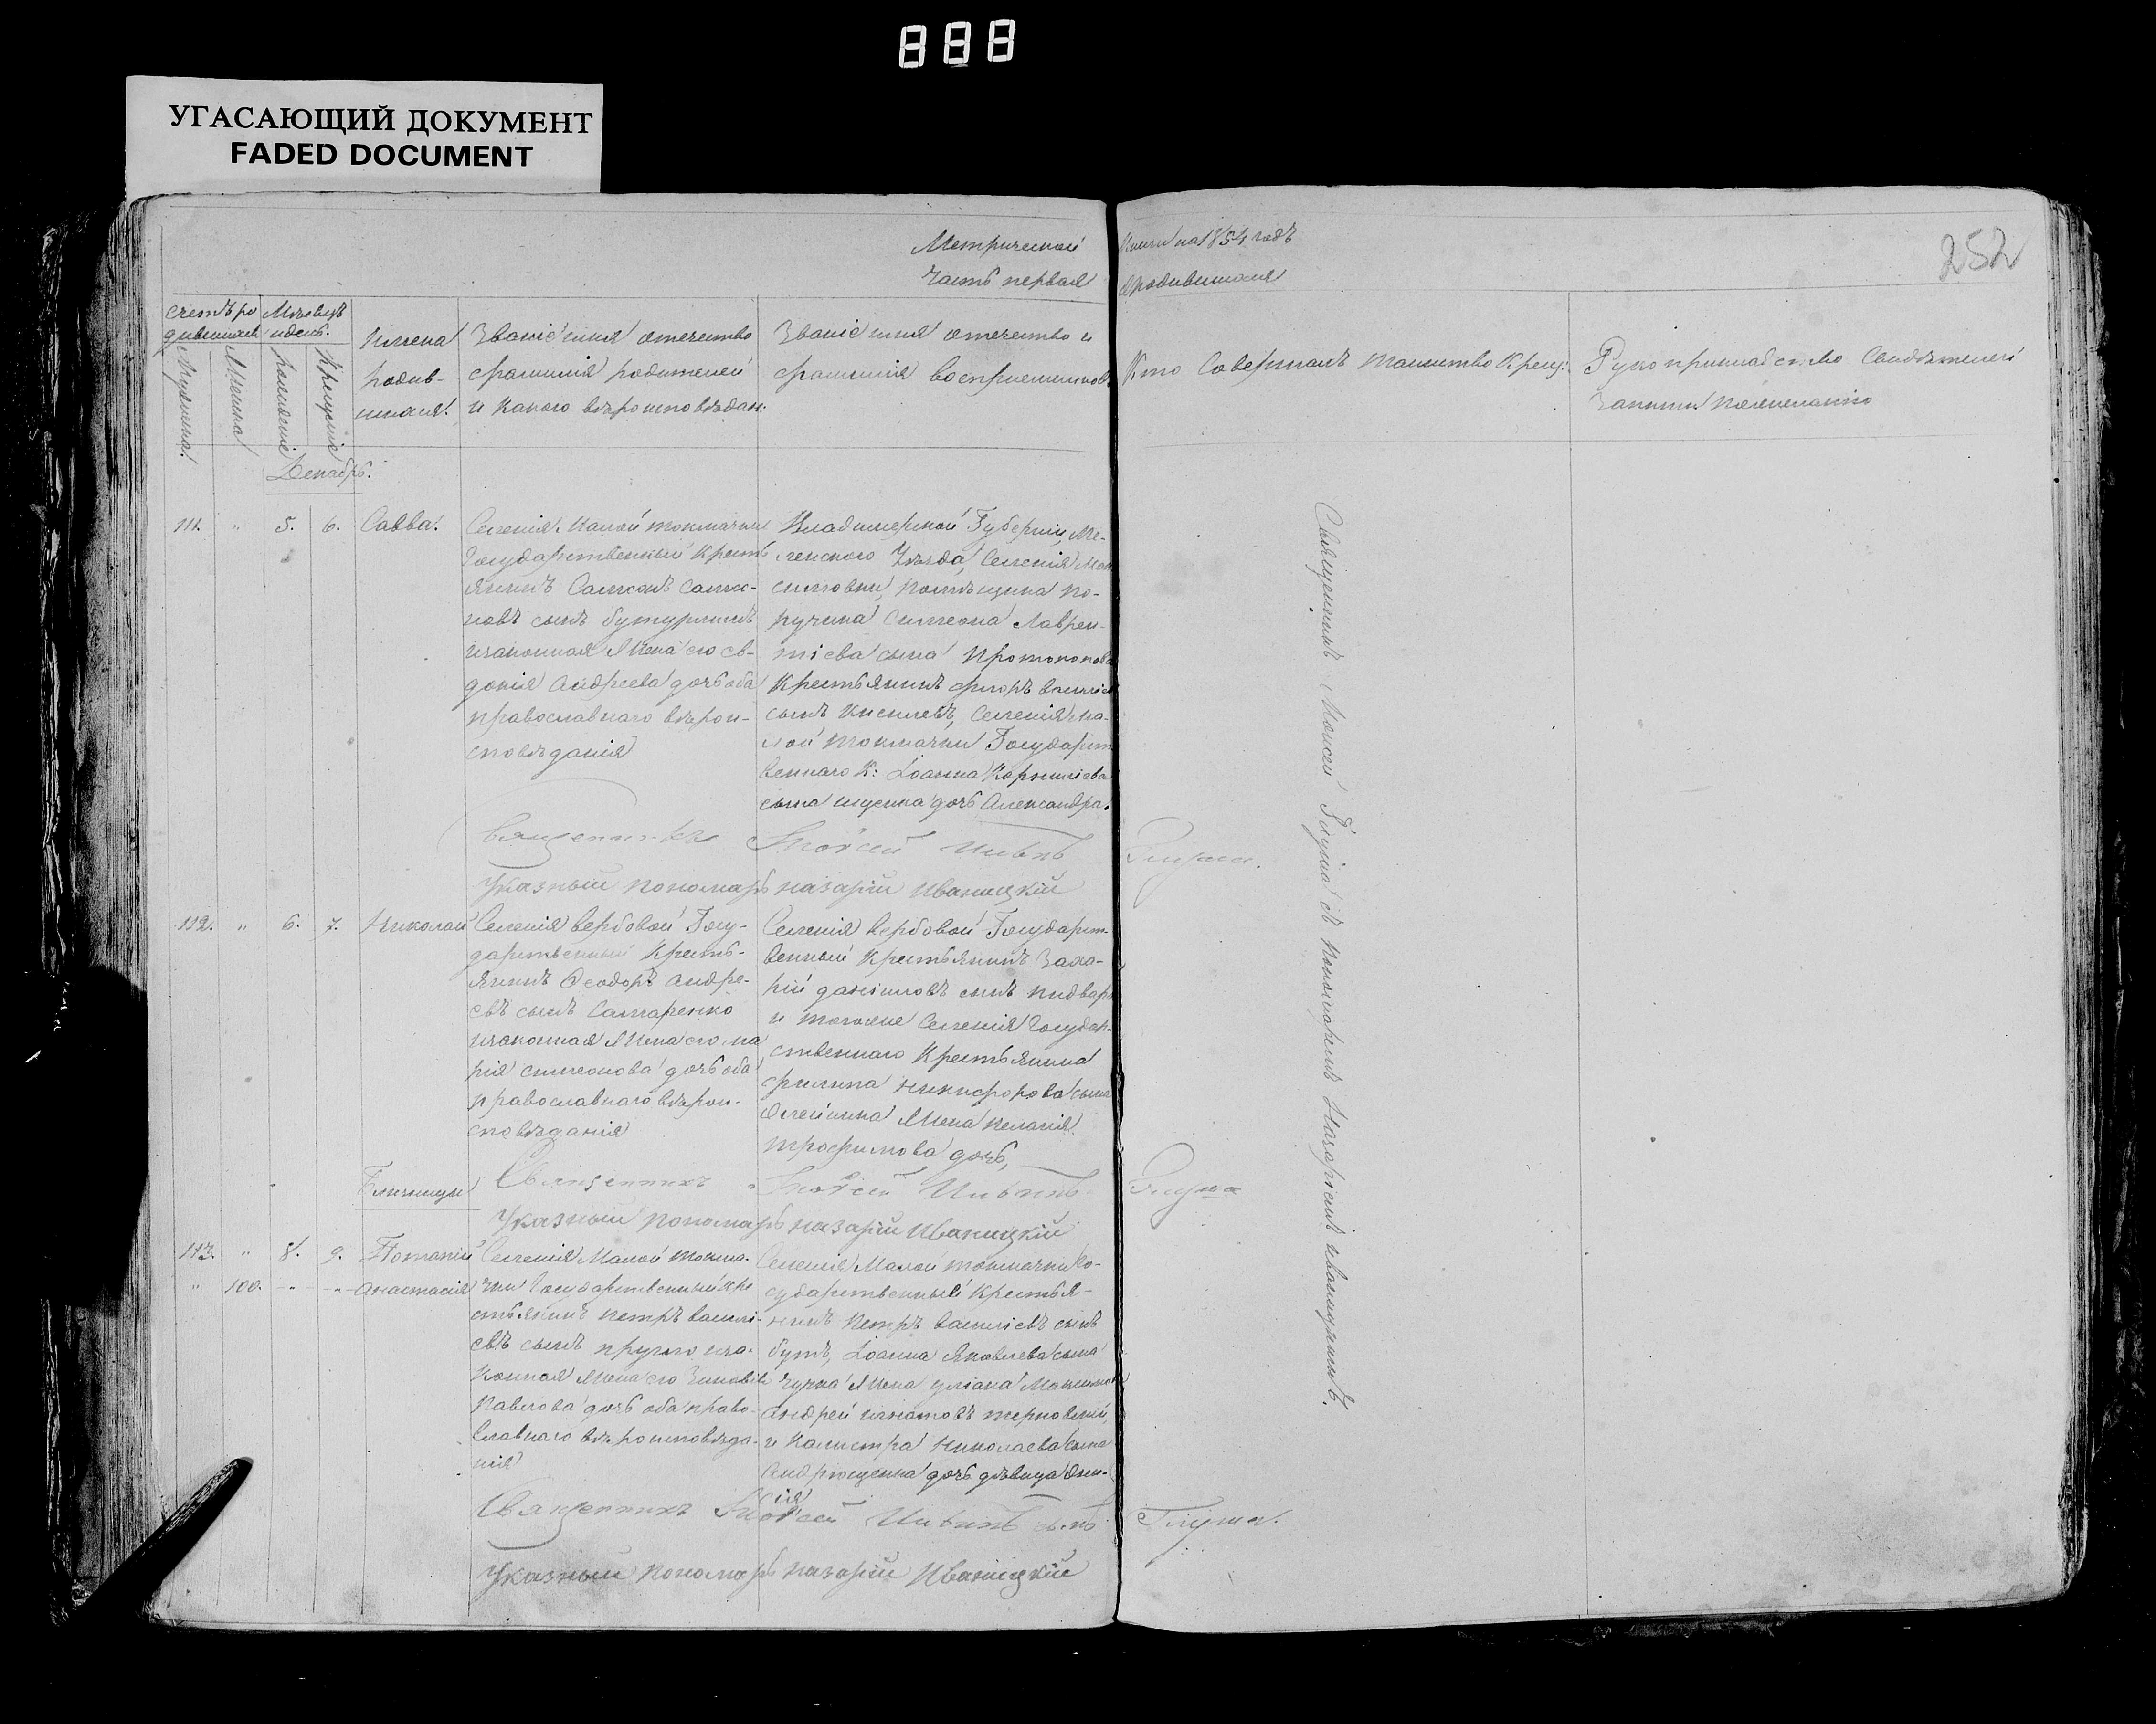 888
УГАСАЮЩИЙ ДОКУМЕНТ
FADED DOCUMENT
252
Метрической Книги на 1854 годъ
Часть первая о родившихся
Счетъ ро Мѣсяцъ
дившихся и день.
Мужеска. Женска Рожденія Крещенія
Имена
родив-
шихся.
Званіе имя отечество
фамилія родителей
и какого вѣроисповѣдан:
Званіе имя отечество и
фамилія воспріемниковъ
Кто Совершалъ таинство Крещ:
Рукоприкладство Свидѣтелей
записи по желанію
Декабрь.
111. " 5. 6. Савва.
Селенія Малой токмачки
Государственный Кресть
янинъ
новъ сынъ бутурлинъ
изаконная Жена его Ев-
докія Андреева дочь оба
православнаго вѣрои-
сповѣданія
Владимерской Губерніи, Ме-
ленского Уѣзда, Селенія Мак
симовки, помѣщика по-
ручика Симеона Лаврен-
тіева сына Протопопова
Крестьянинъ фролъ василіев
сынъ Киселевъ, Селенія Ма-
лой токмачки Государст
веннаго К: Іоанна Корниліева
сына ищенка дочь Александра.
Священникъ Моѵсей Глущка.
Указный пономарь назарій Иваницкій
112. " 6. 7. Николай
Селенія вербовой Госу-
дарственный Кресть-
янинъ Феодоръ Андре-
евъ сынъ Самаренко
изаконная Жена его ма
рія симеонова дочь оба
православнаго вѣрои-
сповѣданія
Селенія вербовой Государст-
венный Крестьянинъ Заха-
рій даніиловъ сынъ
и тогоже Селенія Государ-
ственнаго Крестьянина
филипа никифорова сына
Олейника Жена пелагія
трофимова дочь,
Священникъ Моѵсей
Указный пономарь назарій Иваницкій
Близнецы
113. " 8. 9. Потапій
" 100. " " Анастасія
Селенія Малой токма-
чки Государственный Кре
стьянинъ петръ васили-
евъ сынъ иза-
конная Жена его Зиновія
Павлова дочь оба право-
славнаго вѣроисповѣда-
нія
Селенія Малой токмачки Го-
сударственный Крестья-
нинъ Петръ василіевъ сынъ
бутъ, Іоанна Яковлева сына
Жена уліана
Андрей игнатовъ терновский,
и Калистра Николаева сына
Андрющенка дочь дѣвица Еви-
ія
Священникъ Моѵсей
Указный пономарь назарій Иваницкій
Священникъ Моѵсей Глуща съ Пономаремъ Назаріемъ Иваницкимъ.